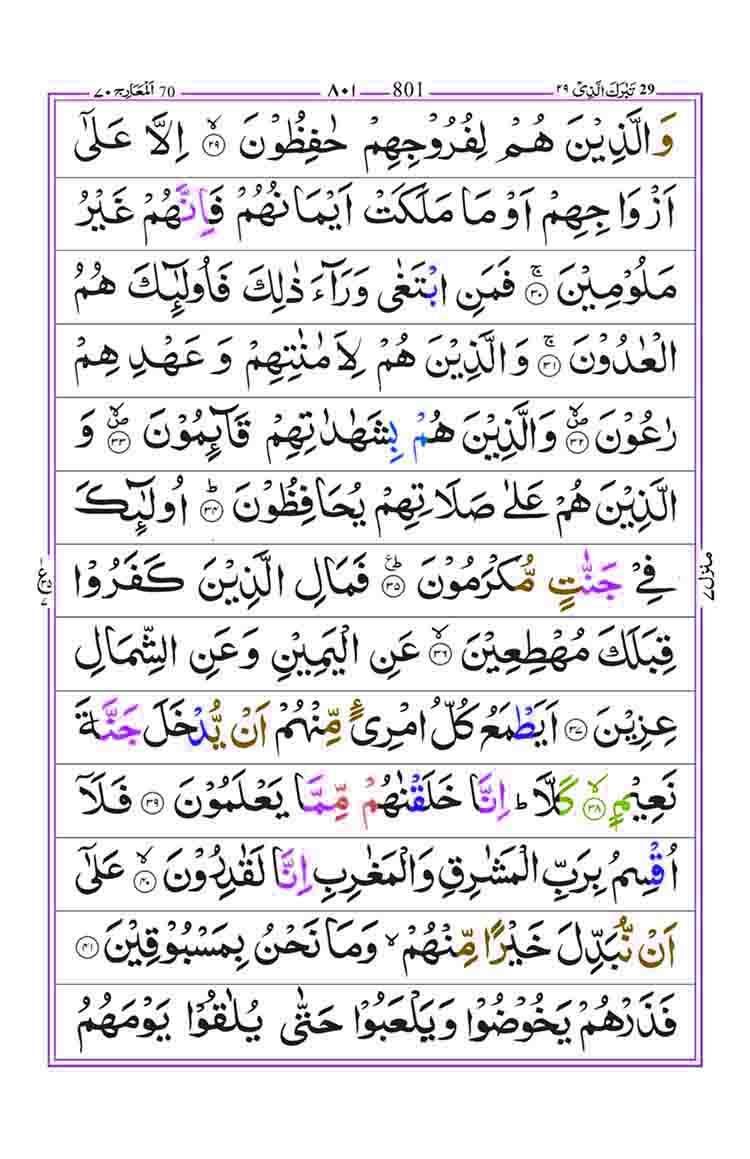 29 تَبٰرَكَ الَّذِیْ ۲۹ 801 ۸۰۱ 70 اَلْمَعَارِج ۷۰
وَالَّذِیْنَ هُمْ لِفُرُوْجِهِمْ حٰفِظُوْنَ ۙ﴿۲۹﴾ اِلَّا عَلٰۤی
اَزْوَاجِهِمْ اَوْ مَا مَلَكَتْ اَیْمَانُهُمْ فَاِنَّهُمْ غَیْرُ
مَلُوْمِیْنَ ۚ﴿۳۰﴾ فَمَنِ ابْتَغٰی وَرَآءَ ذٰلِكَ فَاُولٰٓئِكَ هُمُ
الْعٰدُوْنَ ۚ﴿۳۱﴾ وَالَّذِیْنَ هُمْ لِاَمٰنٰتِهِمْ وَ عَهْدِهِمْ
رٰعُوْنَ ۪ۙ﴿۳۲﴾ وَالَّذِیْنَ هُمْ بِشَهٰدٰتِهِمْ قَآئِمُوْنَ ۪ۙ﴿۳۳﴾ وَ
الَّذِیْنَ هُمْ عَلٰی صَلَاتِهِمْ یُحَافِظُوْنَ ؕ﴿۳۴﴾ اُولٰٓئِكَ
فِیْ جَنّٰتٍ مُّكْرَمُوْنَ ؕ﴿۳۵﴾ فَمَالِ الَّذِیْنَ كَفَرُوْا
قِبَلَكَ مُهْطِعِیْنَ ۙ﴿۳۶﴾ عَنِ الْیَمِیْنِ وَعَنِ الشِّمَالِ
عِزِیْنَ ﴿۳۷﴾ اَیَطْمَعُ كُلُّ امْرِئٍ مِّنْهُمْ اَنْ یُّدْخَلَ جَنَّةَ
نَعِیْمٍ ۙ﴿۳۸﴾ كَلَّا ؕ اِنَّا خَلَقْنٰهُمْ مِّمَّا یَعْلَمُوْنَ ﴿۳۹﴾ فَلَاۤ
اُقْسِمُ بِرَبِّ الْمَشٰرِقِ وَالْمَغٰرِبِ اِنَّا لَقٰدِرُوْنَ ۙ﴿۴۰﴾ عَلٰۤی
اَنْ نُّبَدِّلَ خَیْرًا مِّنْهُمْ ۙ وَمَا نَحْنُ بِمَسْبُوْقِیْنَ ﴿۴۱﴾
فَذَرْهُمْ یَخُوْضُوْا وَیَلْعَبُوْا حَتّٰی یُلٰقُوْا یَوْمَهُمُ
منزل ۷